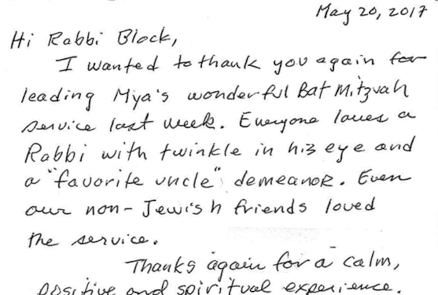 May 20, 2017
Hi Rabbi Block,
I wanted to thank you again for
leading Mya's wonderful Bat Mitzvah
service last week. Everyone loves a
Rabbi with twinkle in his eye and
a "favorite uncle" demeanor. Even
our non-Jewish friends loved
the service.
Thanks again for a calm,
positive and spiritual experience.